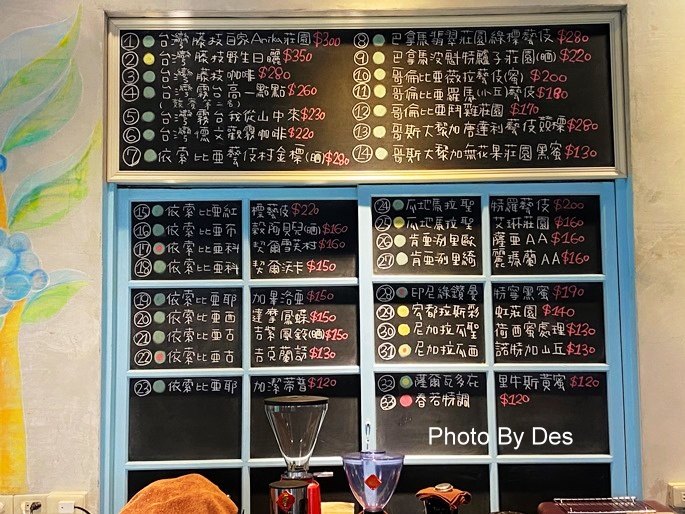 ① 台灣 藤枝自家Anika莊園$300
② 台灣 藤枝野生日曬$350
③ 台灣 藤枝咖啡$280
④ 台灣 霧台高一點點$260
⑤ 台灣 霧台我從山中來$230
⑥ 台灣 德文觀霧咖啡$220
⑦ 依索比亞藝伎村金標(晒)$280
⑧ 巴拿馬翡翠莊園綠標藝伎$280
⑨ 巴拿馬波魁特驢子莊園(晒)$220
⑩ 哥倫比亞薇拉藝伎(蜜)$200
⑪ 哥倫比亞羅馬(小豆)藝伎$180
⑫ 哥倫比亞鬥雞莊園 $170
⑬ 哥斯大黎加唐蓮利藝伎競標$280
⑭ 哥斯大黎加無花果莊園黑蜜$130
⑮ 依索比亞紅標藝伎$220
⑯ 依索比亞布穀阿貝兒(晒)$160
⑰ 依索比亞科契爾雪芙村$150
⑱ 依索比亞科契爾沃卡$150
⑲ 依索比亞耶加果洛亞$150
⑳ 依索比亞西達摩鳳蝶$150
㉑ 依索比亞古吉紫風鈴(晒)$150
㉒ 依索比亞古吉克蘭詩$130
㉓ 依索比亞耶加潔蒂普$120
㉔ 瓜地馬拉聖特羅藝伎$200
㉕ 瓜地馬拉聖艾琳莊園$160
㉖ 肯亞涅里歐薩亞AA$160
㉗ 肯亞涅里綺麗瑪蘭AA$160
㉘ 印尼綠鑽曼特寧黑蜜$190
㉙ 宏都拉斯彩虹莊園$140
㉚ 尼加拉瓜聖荷西蜜處理$130
㉛ 尼加拉瓜西諾特加山丘$130
㉜ 薩爾瓦多在里牛斯黃蜜$120
㉝ 春若特調 $120
Photo By Des